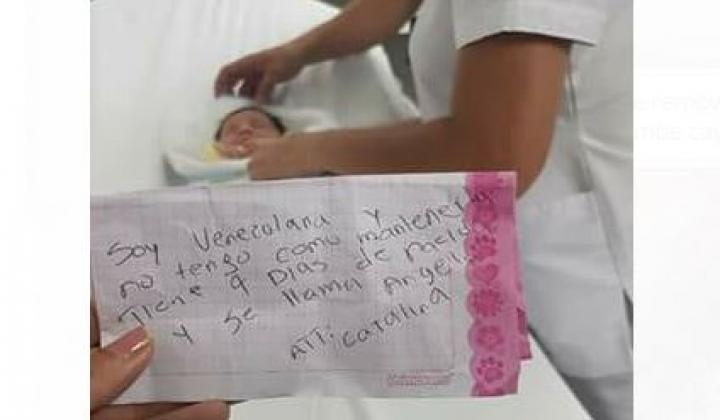 Soy Venecolana y
no tengo como mantenerla
Tiene 9 Dias de
y se llama Angel
ATT: Catalina